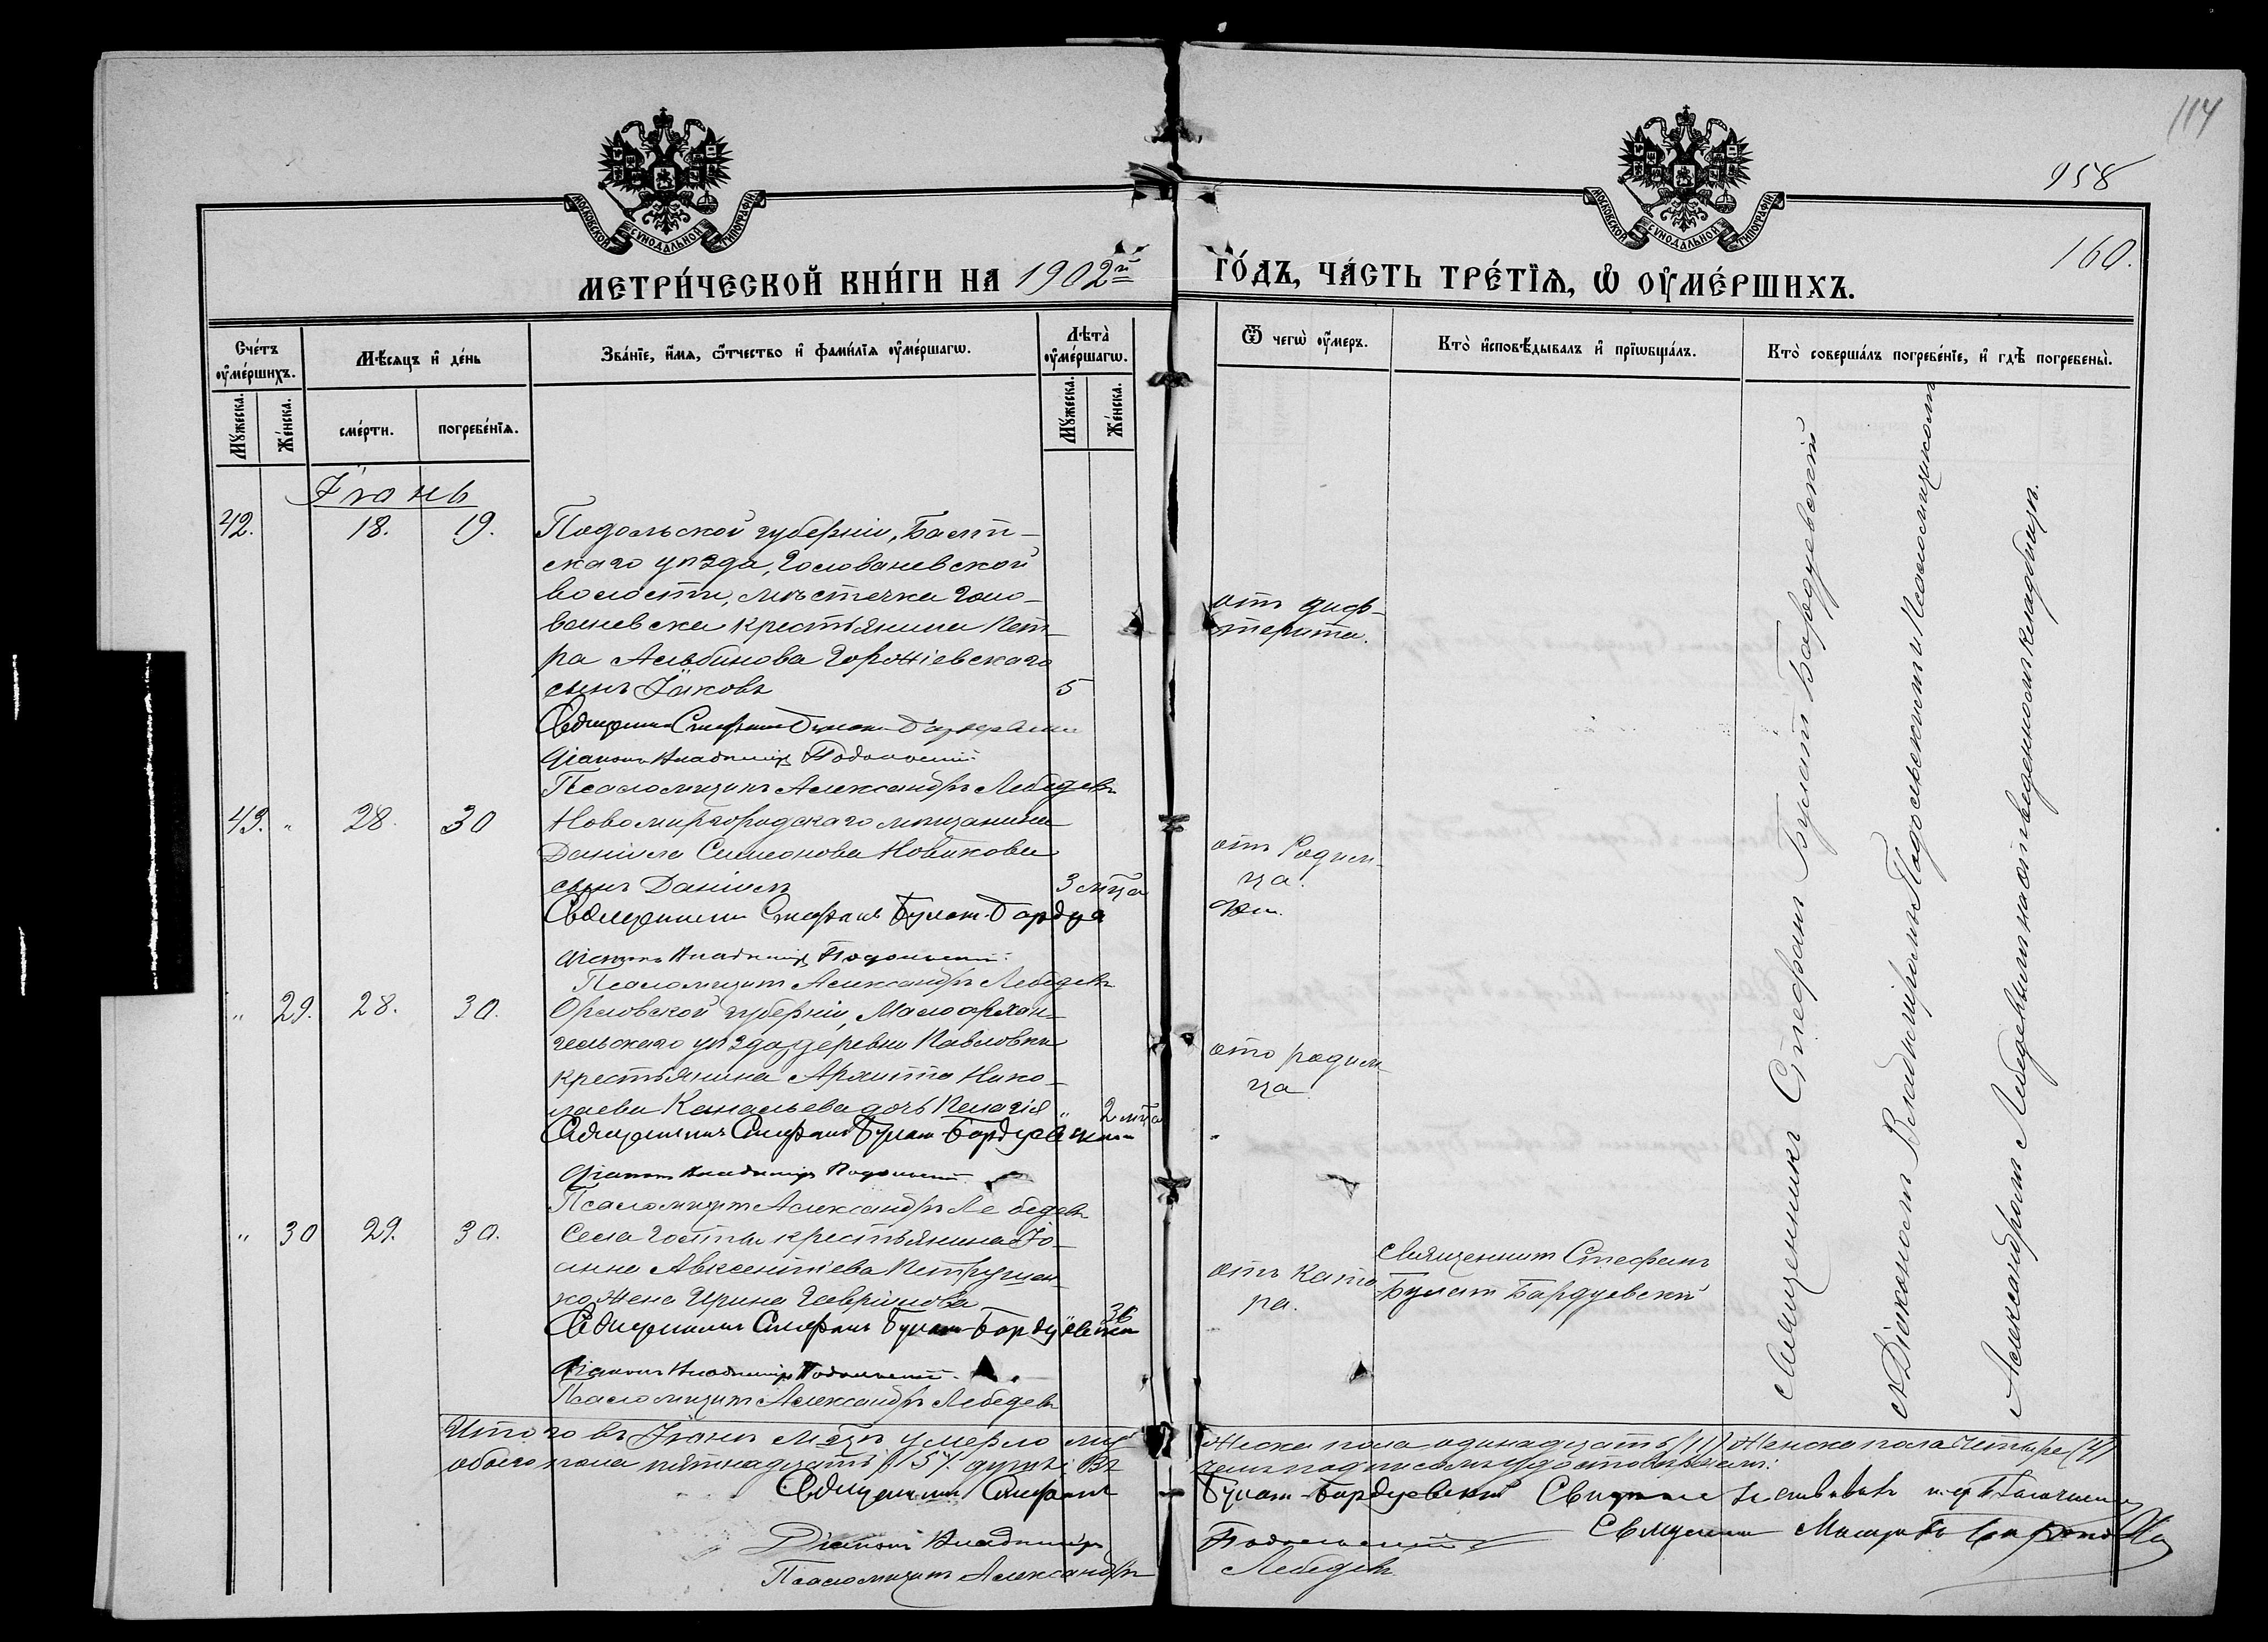 114
958
160.
МОСКОВСКОЙ СѴНОДАЛЬНОЙ ТИПОГРАФІИ
МОСКОВСКОЙ СѴНОДАЛЬНОЙ ТИПОГРАФІИ
МЕТРИ́ЧЕСКОЙ КНИ́ГИ НА 1902й ГО́ДЪ, ЧА́СТЬ ТРЕ́ТЇѦ, Ѡ҆ ОУ҆МЕ́РШИХЪ.
Сче́тъ оу҆ме́ршихъ.
Мѣ́сяцъ и҆ де́нь
Зва́нїе, и҆́мѧ, ѻ҆́тчество и҆ фами́лїѧ оу҆ме́ршагѡ.
Лѣта̀ оу҆ме́ршагѡ.
Ѿ чегѡ̀ оу҆́меръ.
Кто̀ и҆сповѣ́дывалъ и҆ прїѡбща́лъ.
Кто̀ соверша́лъ погребе́нїе, и҆ гдѣ̀ погребены̀.
Мꙋ́жеска.
Же́нска.
сме́рти.
погребе́нїѧ.
Мꙋ́жеска.
Же́нска.
Іюнь
42. 18. 19. Подольской губерніи, Балт-
скаго уѣзда, Голованевской
волости, мѣстечка Голо-
ваневска крестьянина Пет-
ра Альбинова Горжіевскаго
сынъ Іаковъ 5
отъ диф-
терита.
Священникъ Стефанъ Булат-Бардуевскій
Діаконъ Владиміръ Подольскій
Псаломщикъ Александръ Лебедевъ
43. " 28. 30 Новомиргородскаго мѣщанина
Даніила Симеонова Новикова
сынъ Даніилъ 3 мѣца
отъ Родим-
ца.
Священникъ Стефанъ Булат-Бардуе
Діаконъ Владиміръ Подольскій
Псаломщикъ Александръ Лебедевъ
" 29. 28. 30. Орловской губерніи, Малоархан-
гельскаго уѣзда, деревни Павловки
крестьянина Архиппа Нико-
лаева Канальева дочь Пелагія " 2 мѣца
отъ родим-
ца
Священникъ Стефанъ Булат-Бардуевскій
Діаконъ Владиміръ Подольскій
Псаломщикъ Александръ Лебедевъ
" 30 29. 30. Села Голты крестьянина Іо-
анна Авксентіева Петрушен-
ко жена Ирина Гавріилова 36
отъ Ката
ра.
Священникъ Стефанъ
Булат Бардуевскій
Священникъ Стефанъ Булат-Бардуевскій
Діаконъ Владиміръ Подольскій
Псаломщикъ Александръ Лебедевъ
Священникъ Стефанъ Булат Бардуевскій
съ Діакономъ Владиміромъ Подольскимъ и Псаломщикомъ
Александромъ Лебедевымъ на отведенномъ кладбищѣ.
Итого въ Іюнѣ мѣцѣ умерло муж
жеска пола одинадцать (11) женска пола четыре (4)
обоего пола пятнадцать (15). душъ: Въ
чемъ подписомъ удостовѣряемъ:
Священникъ Стефанъ Булат-Бардуевскій
Діаконъ Владиміръ Подольскій
Священникъ
Псаломщикъ Александръ Лебедевъ